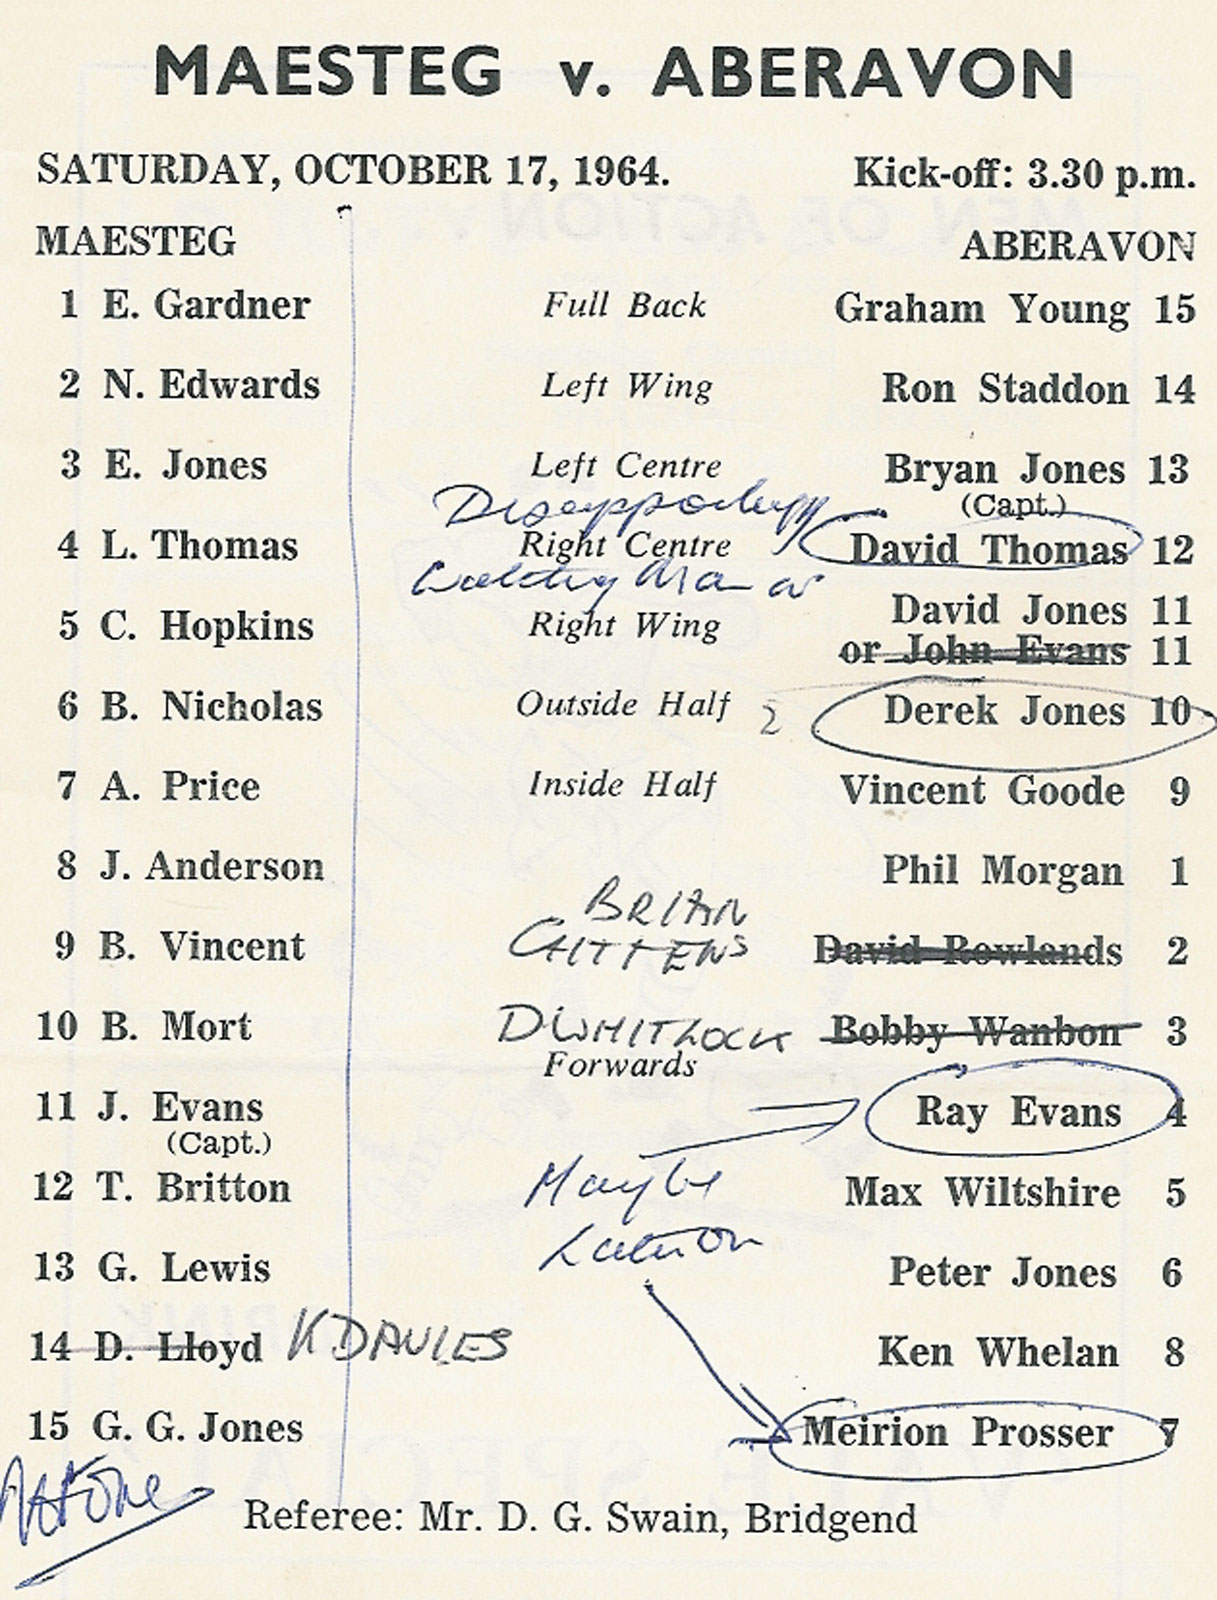 MAESTEG v. ABERAVON
SATURDAY, OCTOBER 17, 1964. Kick-off: 3.30 p.m.
MAESTEG ABERAVON
1 E. Gardner Full Back Graham Young 15
2 N. Edwards Left Wing Ron Staddon 14
3 E. Jones Left Centre Bryan Jones 13
(Capt.)
4 L. Thomas Right Centre David Thomas 12
David Jones 11
5 C. Hopkins Right Wing
or John Evans 11
6 B. Nicholas Outside Half Derek Jones 10
7 A. Price Inside Half Vincent Goode 9
8 J. Anderson Phil Morgan 1
BRIAN
9 B. Vincent GITTENS David Rowlands 2
10 B. Mort D WHITLOCK Bobby Wanbon 3
Forwards
11 J. Evans Ray Evans 4
(Capt.)
12 T. Britton Maybe Max Wiltshire 5
Later on
13 G. Lewis Peter Jones 6
14 D. Lloyd K DAVIES Ken Whelan 8
15 G. G. Jones Meirion Prosser 7
Referee: Mr. D. G. Swain, Bridgend